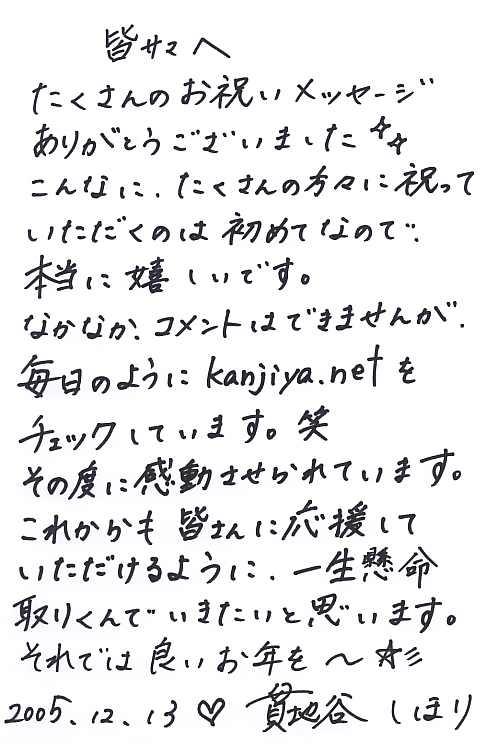 皆サマへ
たくさんのお祝いメッセージ
ありがとうございました☆☆
こんなに、たくさんの方々に祝って
いただくのは初めてなので、
本当に嬉しいです。
なかなか、コメントはできませんが、
毎日のようにkanjiya.netを
チェックしています。笑
その度に感動させられています。
これからも皆さんに応援して
いただけるように、一生懸命
取りくんでいきたいと思います。
それでは良いお年を〜☆彡
2005.12.13♡貫地谷しほり